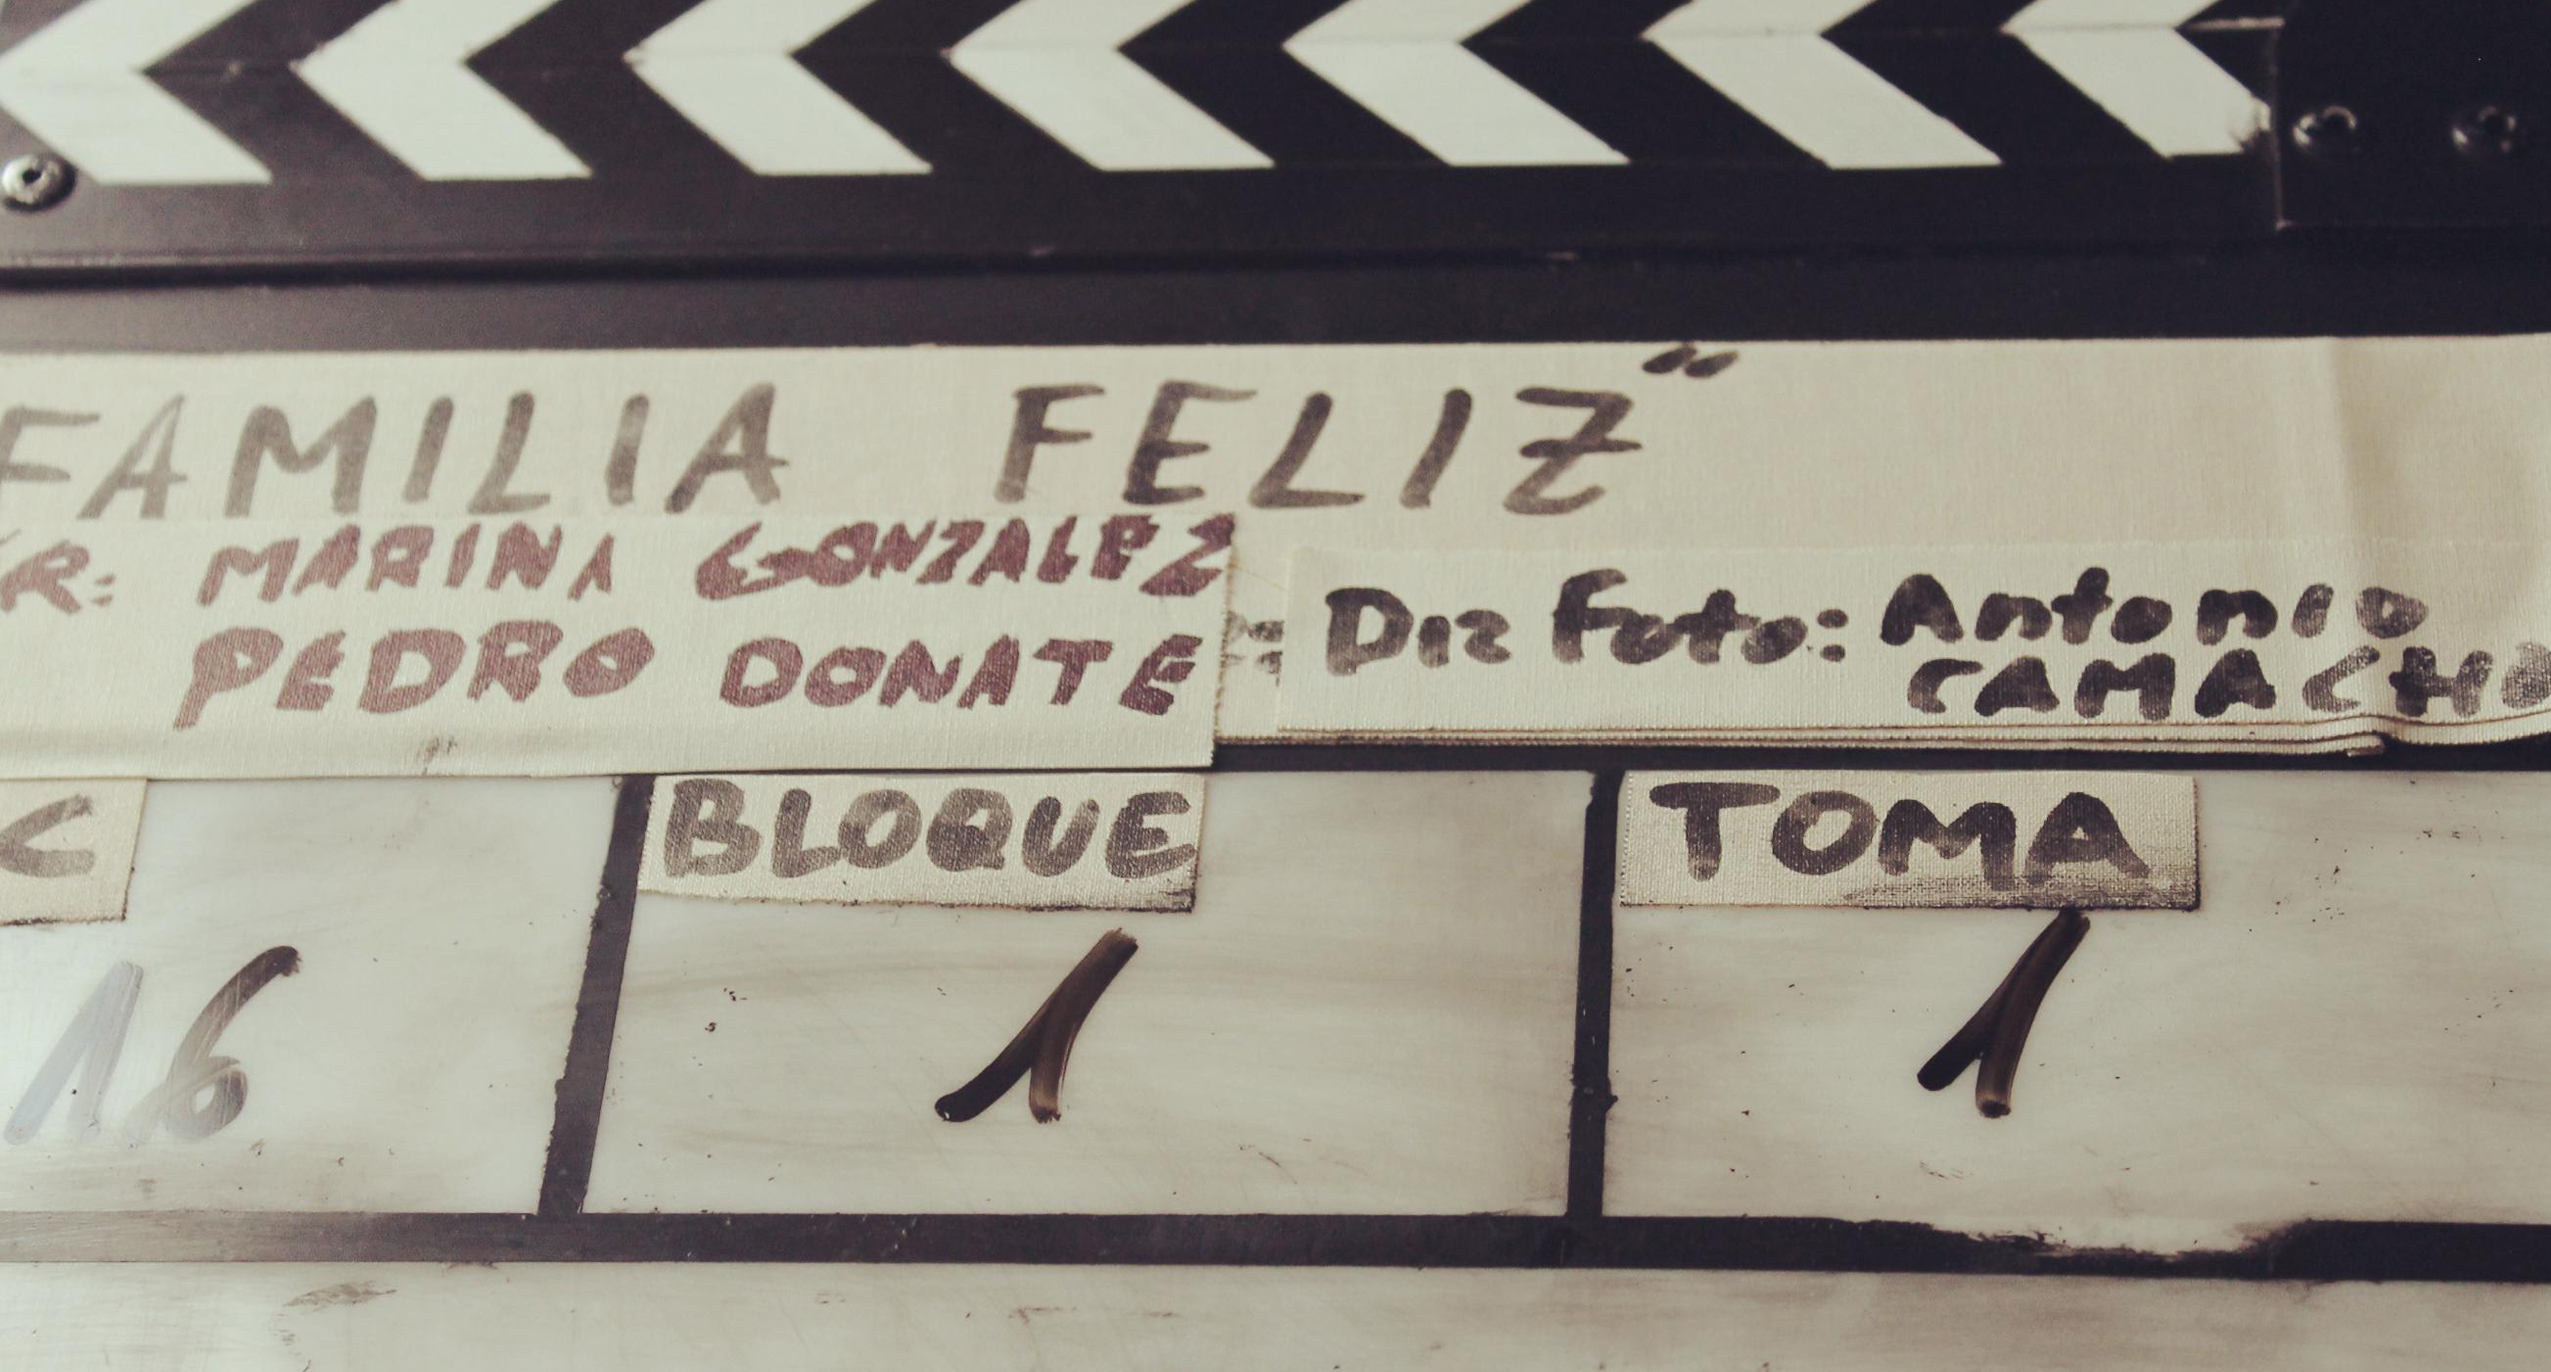 FAMILIA FELIZ"
R: MARINA GONZALEZ
PEDRO DONATE
Dir Foto: Antonio
CAMACHO
C
BLOQUE
TOMA
16
1
1